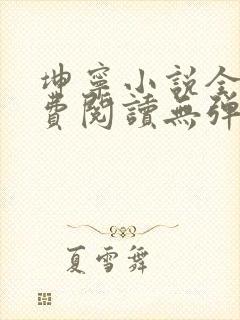 坤寧小說全
費閱讀無彈
夏雪舞